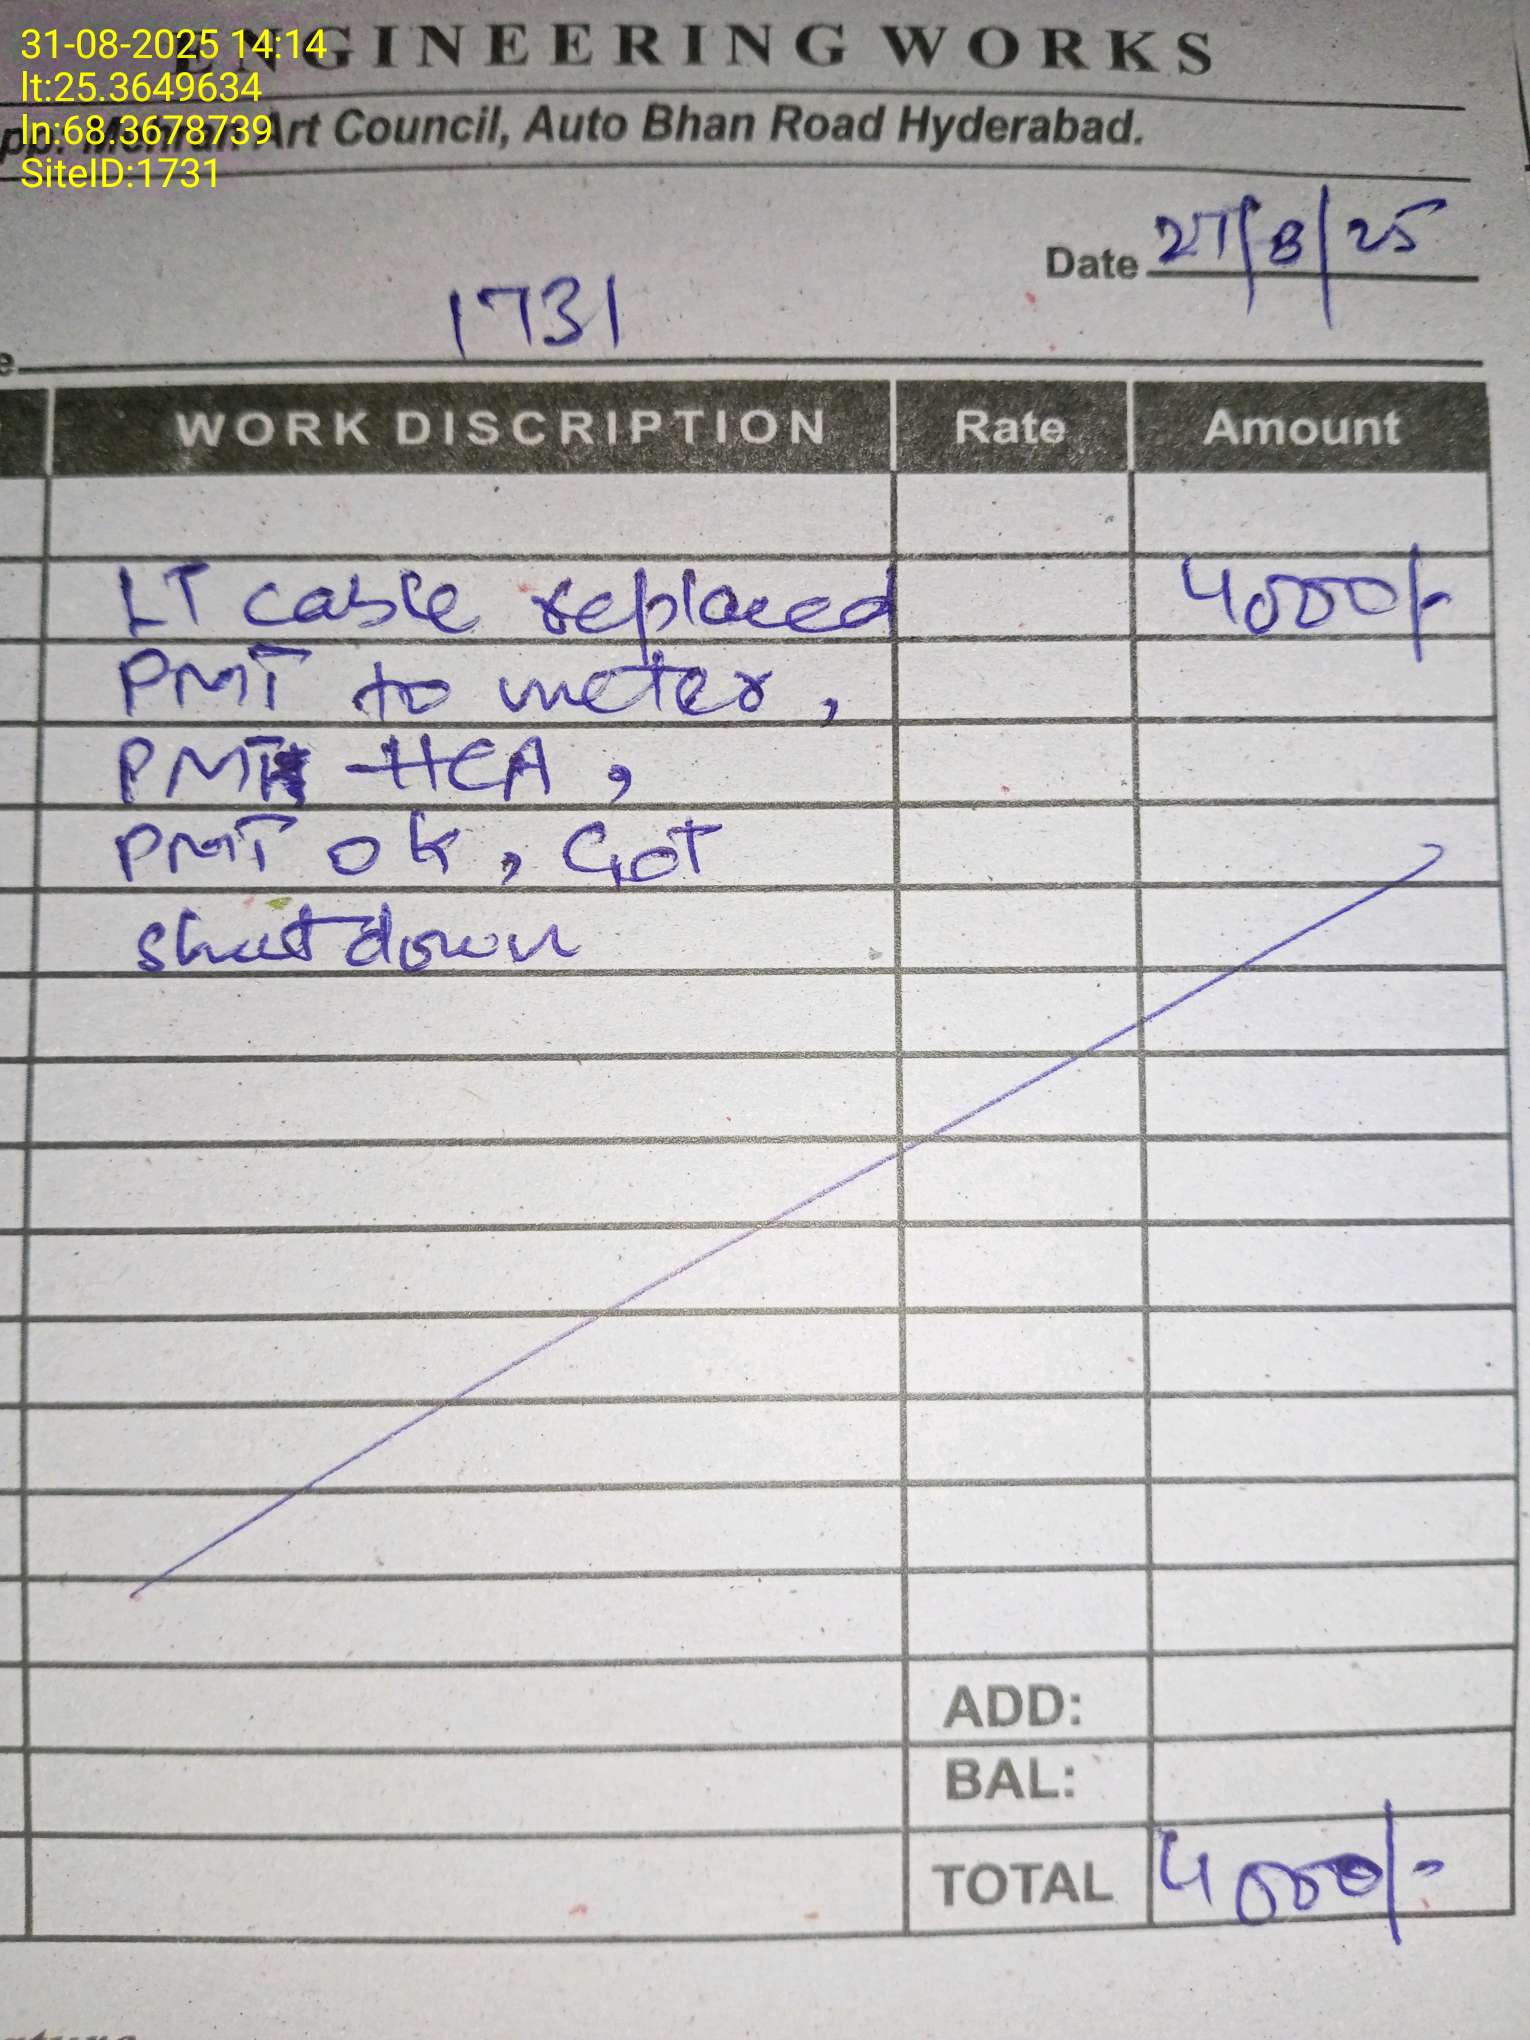 31-08-2025 14:14
lt:25.3649634
ln:68.3678739
SiteID:1731
ENGINEERING WORKS
Art Council, Auto Bhan Road Hyderabad.
Date 27/8/25
1731
WORK DISCRIPTION Rate Amount
LT cable replaced 4000/-
PMT to meter,
HCA,
PMT ok, Got
shutdown
ADD:
BAL:
TOTAL 4000/-